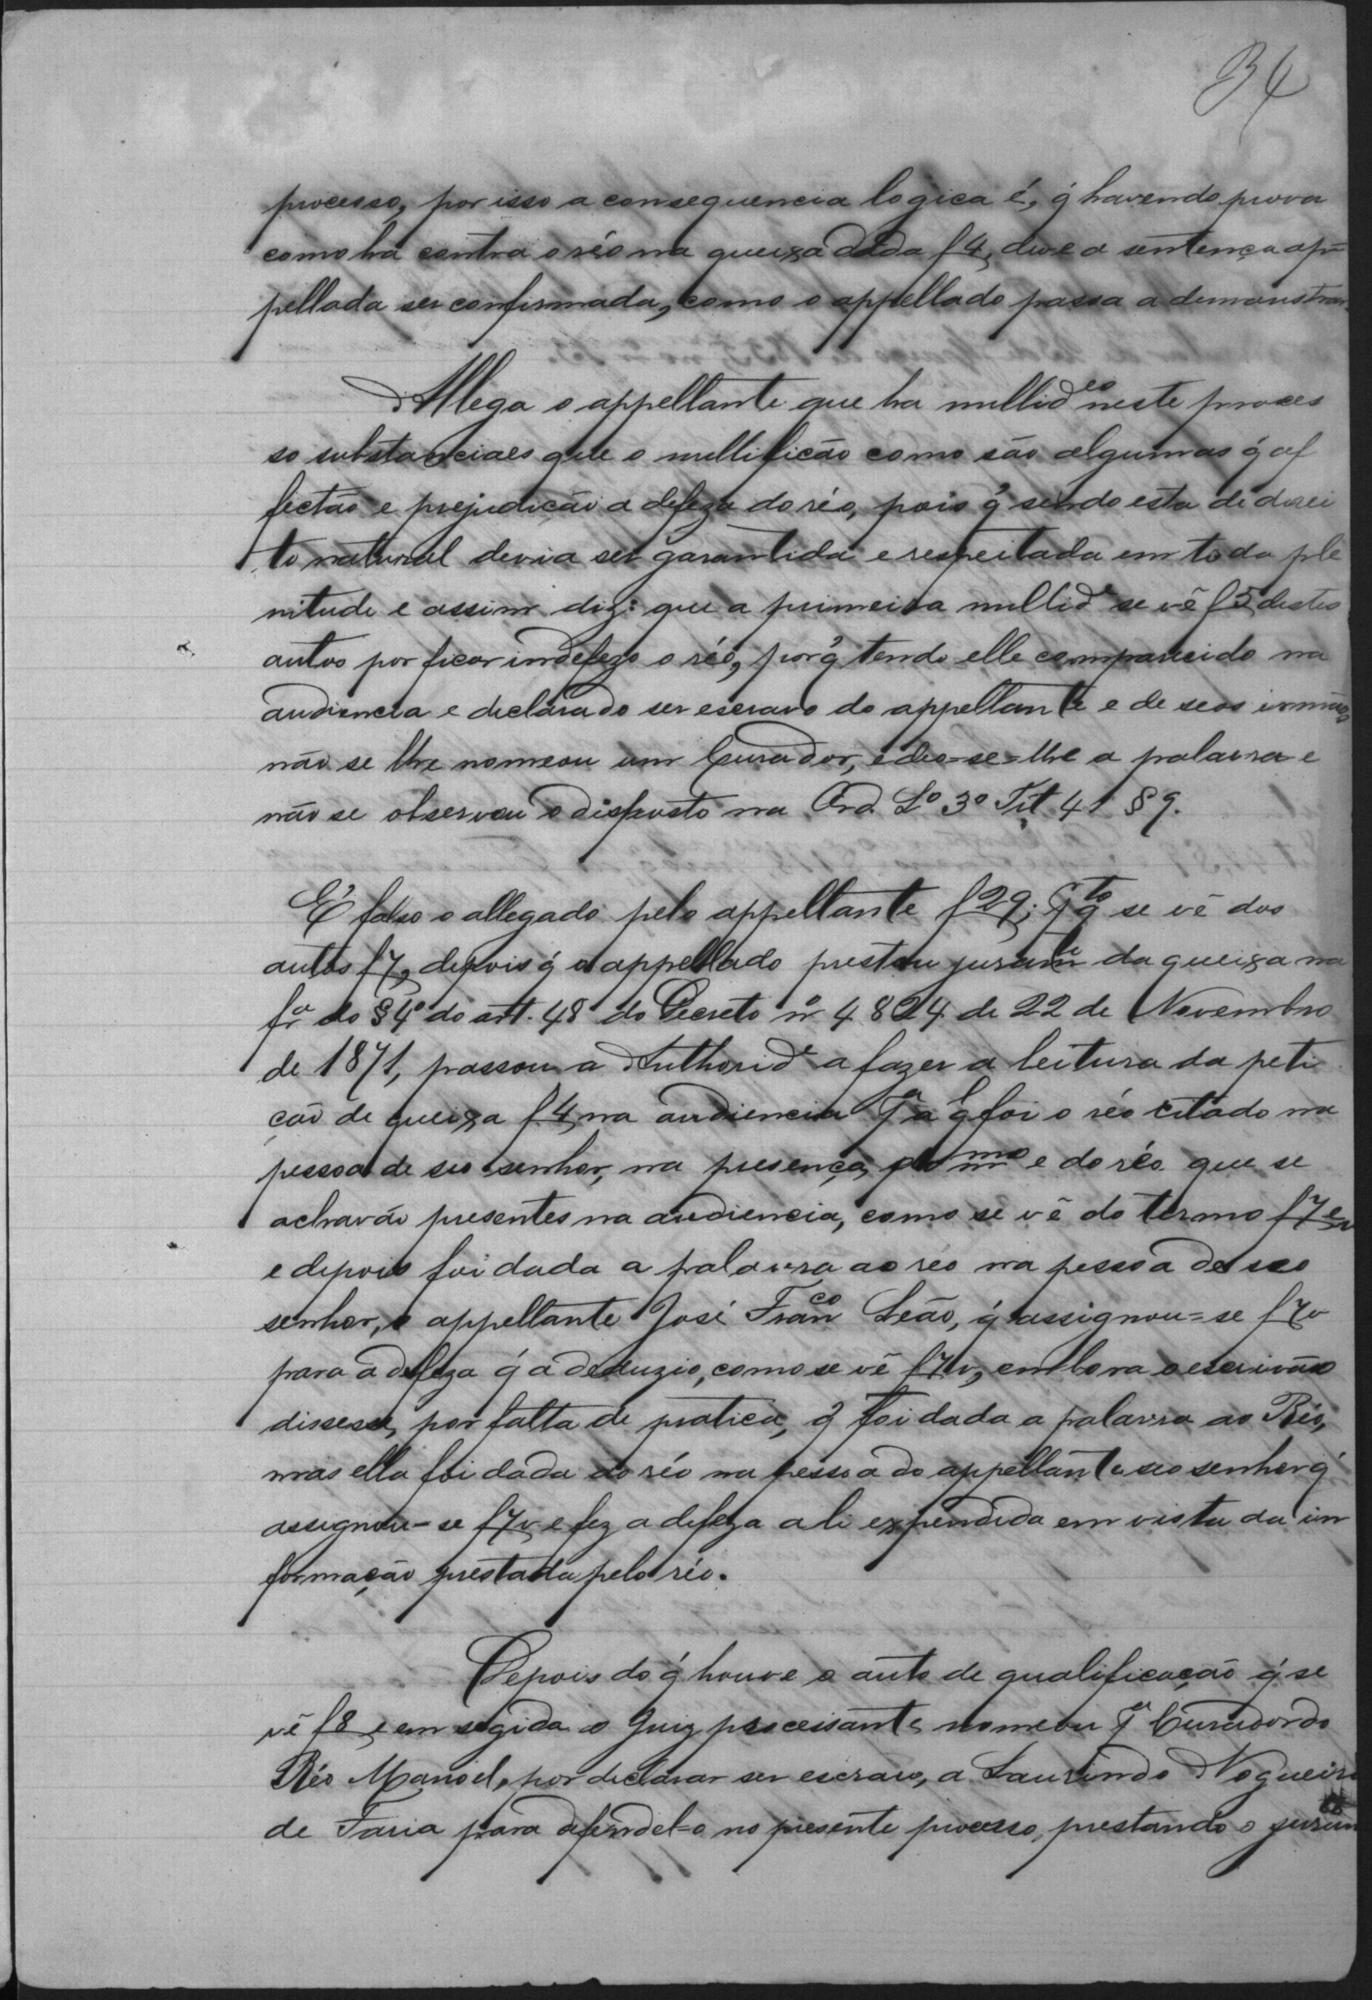 34
processo, por isso a consequencia logica é, q̃ havendo prova
como ha contra o réo na queixa dada f 4, deve a sentença ap=
pellada ser confirmada, como o appellado passa a demonstrar.
Allega o appellante que ha nullid.es neste proces
so substanciaes que o nullificão como são algumas q̃ af
fectão e prejudicão a defeza do réo, pois q̃ sendo esta de direi
to natural devia ser garantida e respeitada em toda ple
nitude e assim diz: que a primeira nullid.e se vê f 5 destes
autos por ficar indefezo o réo, porq̃ tendo elle comparecido na
audiencia e declarado ser escravo do appellante e de seos irmãos
não se lhe nomeou um Curador, e deo-se-lhe a palavra e
não se observou o disposto na Ord. L.o 3.o Tit 41 § 9.
É falso o allegado pelo appellante f 29; q.to se vê dos
autos f 7, depois q̃ o appellado prestou juram.to da queixa na
fr.a do § 4º do art. 48 do Decreto nº 4824 de 22 de Novembro
de 1871, passou a Authorid.e a fazer a leitura da peti
ção de queixa f 4, na audiencia p.a a q.l foi o réo citado na
pessoa de seo senhor, na presença do m.mo e do réo que se
achavão presentes na audiencia, como se vê do termo f 7 e v
e depois foi dada a palavra ao réo na pessoa de seo
senhor, o appellante José Fran.co Leão, q̃ assignou=se f 7v
para a defeza q̃ a deduzio, como se vê f 7v, embora o escrivão
dissesse, por falta de pratica, q̃ foi dada a palavra ao Réo,
mas ella foi dada ao réo na pessoa do appellante seo senhor q̃
assignou-se f 7v, e fez a defeza ali expendida em vista da in
formação prestada pelo réo.
Depois do q̃ houve o auto de qualificação q̃ se
vê f 8, e em segida o Juiz processante nomeou p.a Curador do
Réo Manoel, por declarar ser escravo, a Laurindo Nogueira
de Faria para defendel-o no presente processo, prestando o juram